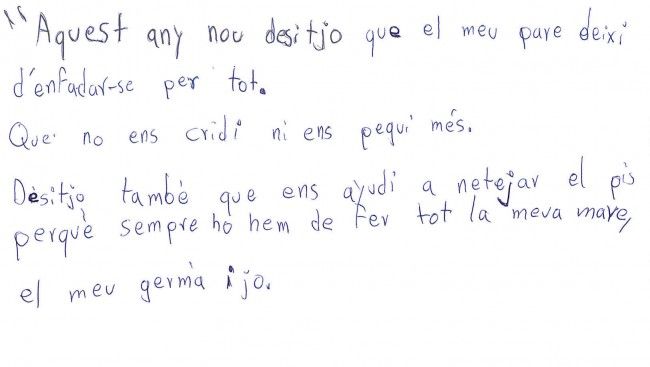 "Aquest any nou desitjo que el meu pare deixi
d'enfadar-se per tot.
Que no ens cridi ni ens pegui més.
Desitjo també que ens ajudi a netejar el pis
perquè sempre ho hem de fer tot la meva mare,
el meu germà i jo.